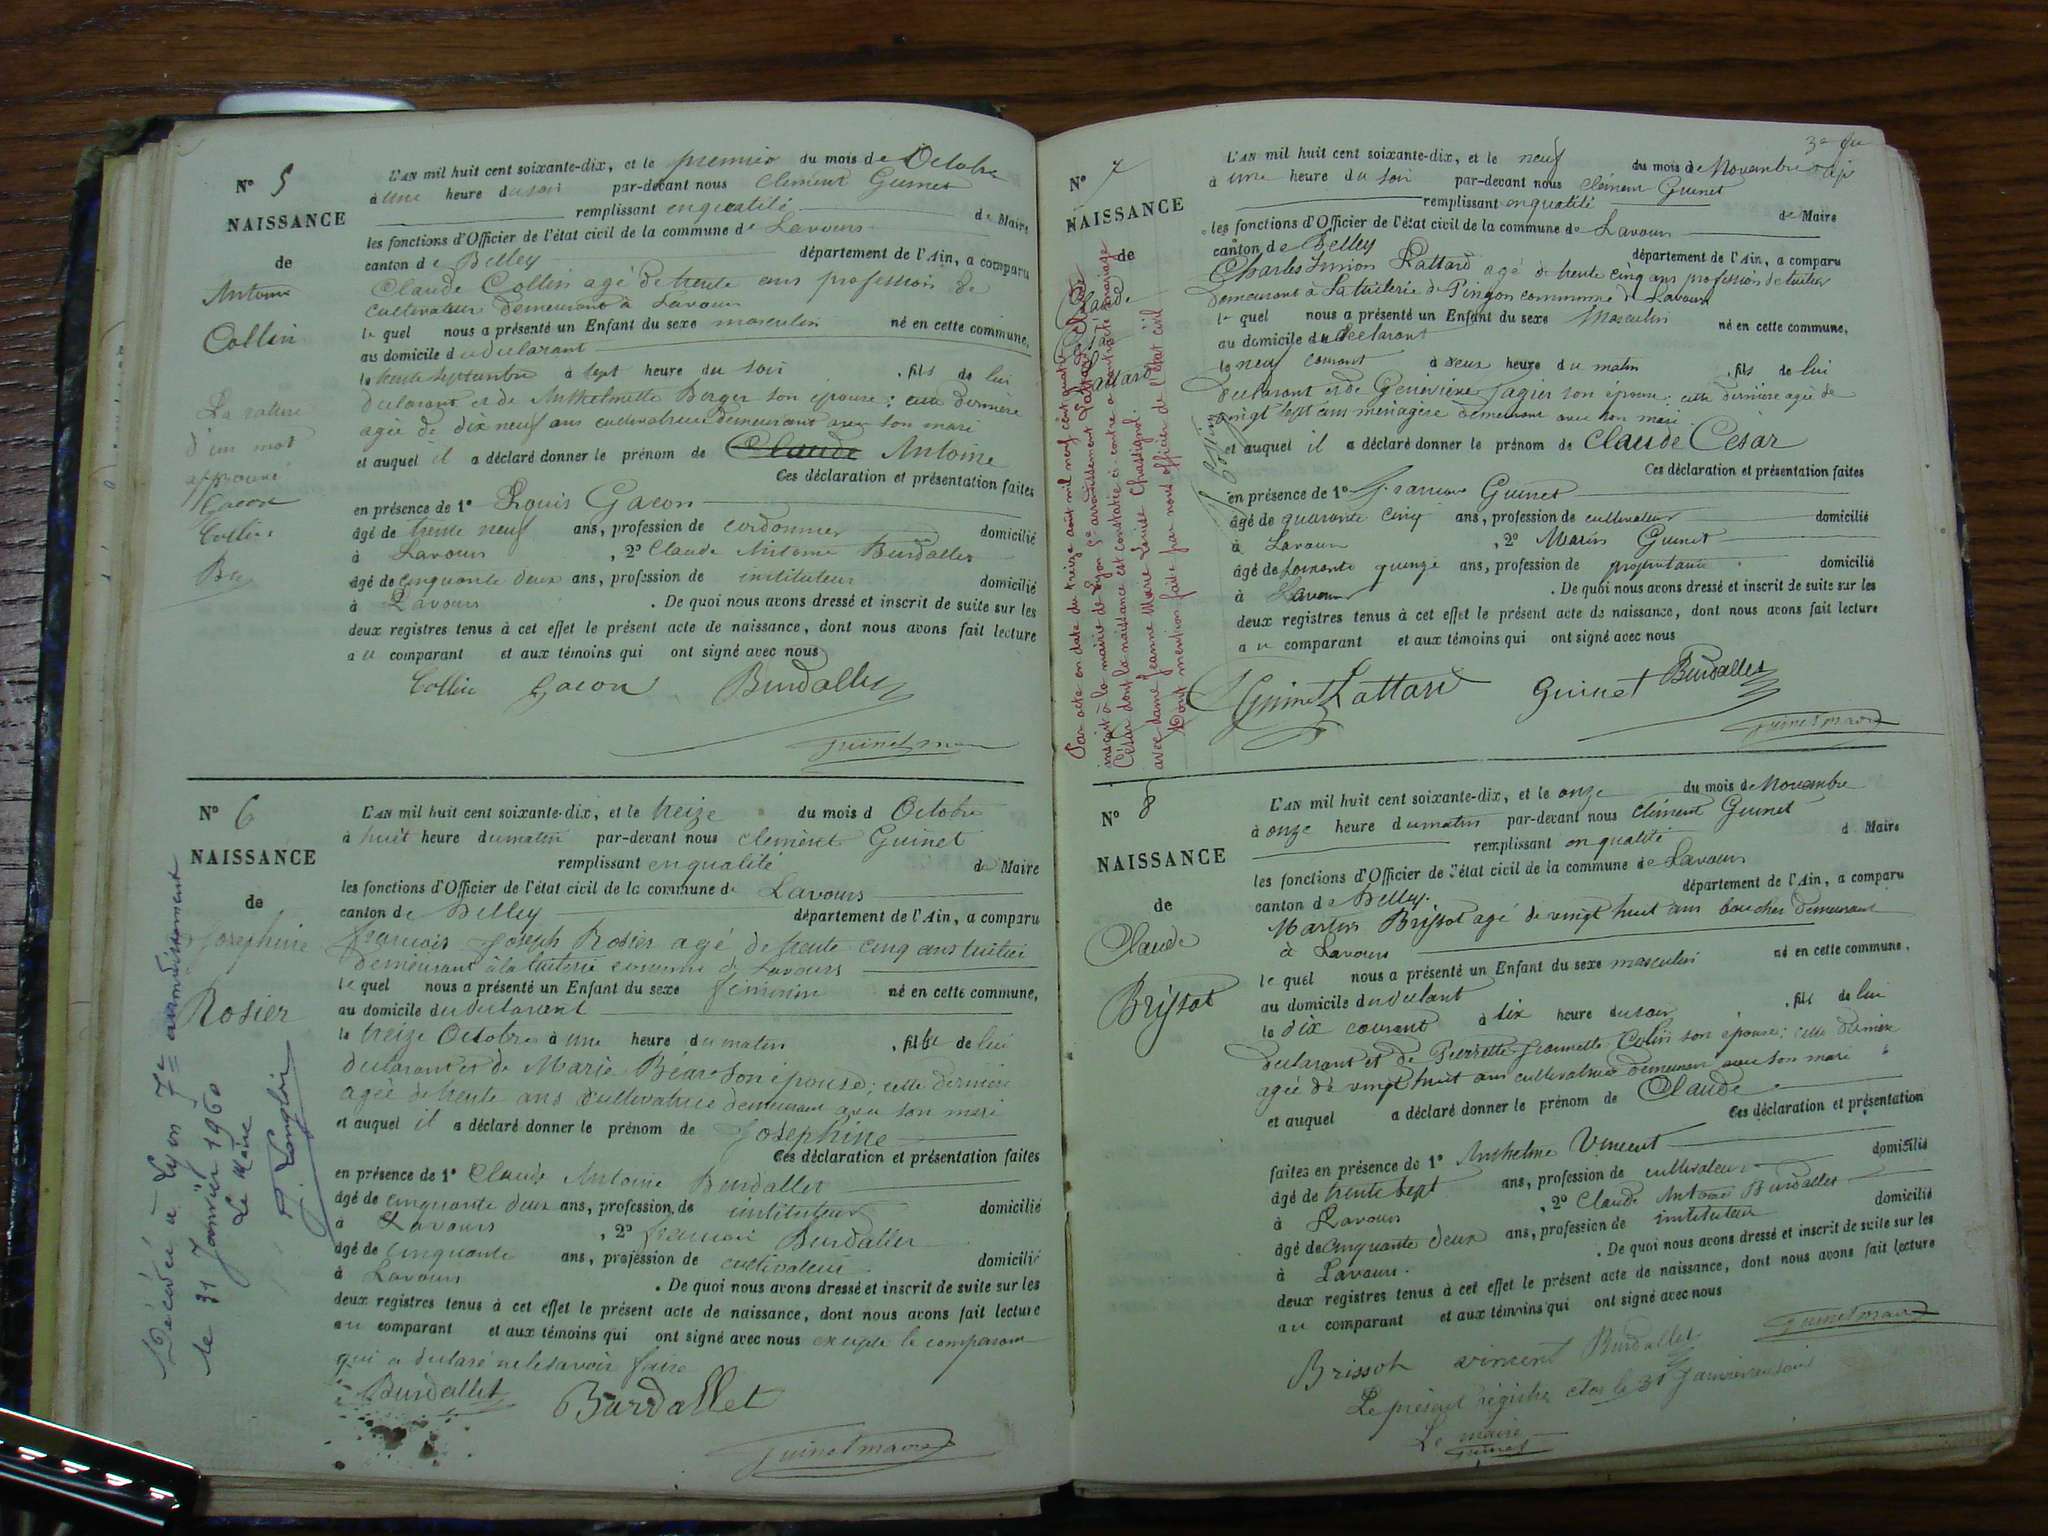 N° 5
NAISSANCE
de
Antoine
Collin
La rature
d'un mot
approuvé
Gacon
Collin
L'AN mil huit cent soixante-dix, et le premier du mois de Octobre
à une heure du soir par-devant nous Clément Guinet
remplissant en qualité de Maire
les fonctions d'Officier de l'état civil de la commune de Lavours
canton de Belley département de l'Ain, a comparu
Claude Collin agé de trente ans profession de
cultivateur demeurant à Lavours
le quel nous a présenté un Enfant du sexe masculin né en cette commune,
au domicile du déclarant
le trente septembre à sept heure du soir , fils de lui
déclarant et de Anthelmette Berger son épouse ; cette dernière
agée de dix neuf ans cultivatrice demeurant avec son mari
et auquel il a déclaré donner le prénom de Claude Antoine
Ces déclaration et présentation faites
en présence de 1° Louis Gacon
âgé de trente neuf ans, profession de cordonnier domicilié
à Lavours , 2° Claude Antoine Burdallet
âgé de cinquante deux ans, profession de instituteur domicilié
à Lavours . De quoi nous avons dressé et inscrit de suite sur les
deux registres tenus à cet effet le présent acte de naissance, dont nous avons fait lecture
au comparant et aux témoins qui ont signé avec nous
Collin Gacon Burdallet
Guinet maire
N° 6
NAISSANCE
de
Joséphine
Rosier
Décédée à Lyon 7e arrondissement
le 31 Janvier 1960
Le Maire
L'AN mil huit cent soixante-dix, et le treize du mois d Octobre
à huit heure du matin par-devant nous clément Guinet
remplissant en qualité de Maire
les fonctions d'Officier de l'état civil de la commune de Lavours
canton de Belley département de l'Ain, a comparu
françois Joseph Rosier agé de trente cinq ans tuilier
demeurant à la tuilerie commune de Lavours
le quel nous a présenté un Enfant du sexe féminin né en cette commune,
au domicile du déclarant
le treize Octobre à une heure du matin , fille de lui
déclarant et de Marie Béar son épouse ; cette dernière
agée de trente ans cultivatrice demeurant avec son mari
et auquel il a déclaré donner le prénom de Joséphine
Ces déclaration et présentation faites
en présence de 1° Claude Antoine Burdallet
âgé de cinquante deux ans, profession de instituteur domicilié
à Lavours , 2° françois Burdallet
âgé de cinquante ans, profession de cultivateur domicilié
à Lavours . De quoi nous avons dressé et inscrit de suite sur les
deux registres tenus à cet effet le présent acte de naissance, dont nous avons fait lecture
au comparant et aux témoins qui ont signé avec nous excepté le comparant
qui a déclaré ne le savoir faire
Burdallet Burdallet
Guinet maire
N° 7
NAISSANCE
de
Claude
César
Lattard
Par acte en date du treize août mil neuf cent quatre
inscrit à la mairie de Lyon arrondissement Lattard Claude
César dont la naissance est constatée ci-contre a contracté mariage
avec dame Jeanne Marie Louise Chastignol.
Dont mention faite par nous officier de l'état civil
L'AN mil huit cent soixante-dix, et le neuf du mois de Novembre
à une heure du soir par-devant nous Clément Guinet
remplissant en qualité de Maire
les fonctions d'Officier de l'état civil de la commune de Lavours
canton de Belley département de l'Ain, a comparu
Charles Lattard agé de trente cinq ans profession de tuilier
demeurant à la tuilerie de Pingon commune de Lavours
le quel nous a présenté un Enfant du sexe Masculin né en cette commune,
au domicile du déclarant
le neuf courant à deux heure du matin , fils de lui
déclarant et de Geneviève Jagier son épouse ; cette dernière agée de
vingt sept ans ménagère demeurant avec son mari
et auquel il a déclaré donner le prénom de Claude César
Ces déclaration et présentation faites
en présence de 1° Guinet
âgé de quarante cinq ans, profession de cultivateur domicilié
à Lavours , 2° Marin Guinet
âgé de soixante quinze ans, profession de propriétaire domicilié
à Lavours . De quoi nous avons dressé et inscrit de suite sur les
deux registres tenus à cet effet le présent acte de naissance, dont nous avons fait lecture
au comparant et aux témoins qui ont signé avec nous
Guinet Lattard Guinet Burdallet
Guinet maire
N° 8
NAISSANCE
de
Claude
Brissot
L'AN mil huit cent soixante-dix, et le onze du mois de Novembre
à onze heure du matin par-devant nous clément Guinet
remplissant en qualité d Maire
les fonctions d'Officier de l'état civil de la commune de Lavours
canton de Belley. département de l'Ain, a comparu
Martin Brissot agé de vingt huit ans boucher demeurant
à Lavours
le quel nous a présenté un Enfant du sexe masculin né en cette commune,
au domicile du déclarant
le dix courant à six heure du soir , fils de lui
déclarant et de Pierrette Jeannette Colin son épouse ; cette dernière
agée de vingt huit ans cultivatrice demeurant avec son mari
et auquel a déclaré donner le prénom de Claude
Ces déclaration et présentation
faites en présence de 1° Anthelme Vincent
âgé de trente sept ans, profession de cultivateur domicilié
à Lavours , 2° Claude Antoine Burdallet
âgé de cinquante deux ans, profession de instituteur domicilié
à Lavours. . De quoi nous avons dressé et inscrit de suite sur les
deux registres tenus à cet effet le présent acte de naissance, dont nous avons fait lecture
au comparant et aux témoins qui ont signé avec nous
Brissot vincent Burdallet Guinet maire
Le présent registre clos le 31
Le maire
Guinet